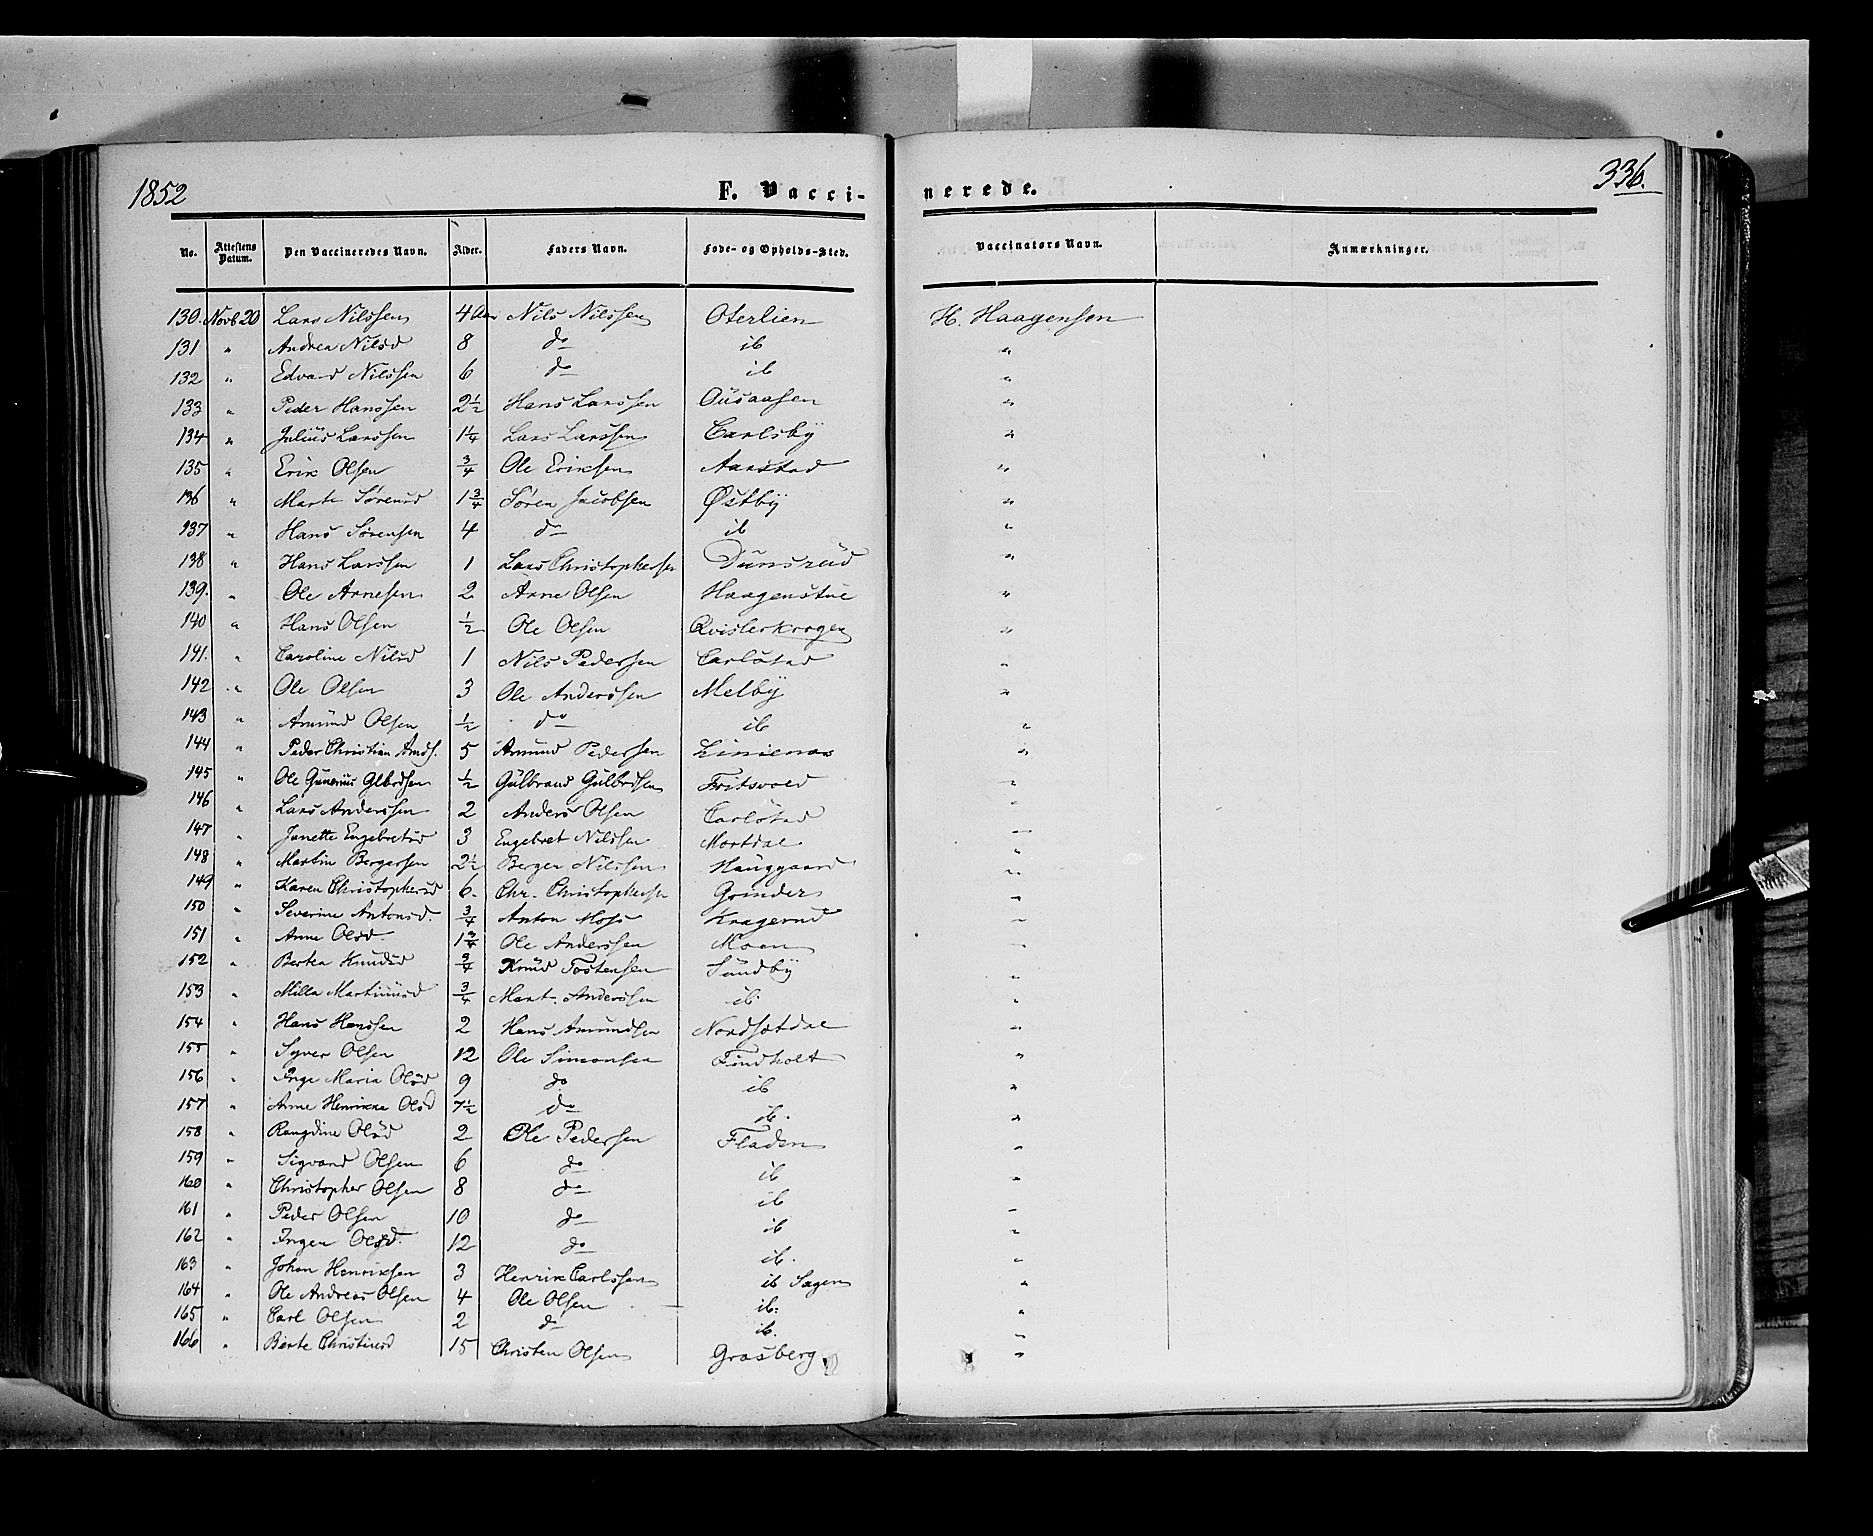 1852 F. Vacci- nerede. 336.
No. Attestens Datum. Den Vaccineredes Navn. Alder. Faders Navn. Føde- og Opholds-Sted. Vaccinatørs Navn. Anmærkninger.
130. Novb 20 Lars Nilssen 4 Aar Nils Nilssen Oterlien H. Haagensen
131 " Andrea Nilsd 8 do ib "
132 " Edvard Nilssen 6 do ib "
133 " Peder Hanssen 2½ Hans Larssen Ousaasen "
134 " Julius Larssen 1¼ Lars Larssen Carlsby "
135 " Erik Olsen ¾ Ole Eriksen Aarstad "
136 " Marte Sørensd 1¾ Søren Jacobsen Østby "
137 " Hans Sørensen 4 do ib "
138 " Hans Larssen 1 Lars Christophersen Dunsrud "
139. " Ole Arnesen 2 Arne Olsen Haagenstue "
140 " Hans Olsen ½ Ole Olsen Qvislerkrogen "
141. " Caroline Nilsd 1 Nils Pedersen Carlstad "
142 " Ole Olsen 3 Ole Anderssen Melby "
143 " Amund Olsen ½ do ib "
144 " Peder Christian Amds. 5 Amund Pedersen "
145 " Ole Gunerius Glbrdsen ½ Gulbrand Gulbrdsen Fritsvold "
146 " Lars Anderssen 2 Anders Olsen Carlstad "
147 " Janette Engebretsd 3 Engebret Nilssen Mortdal "
148 " Martin Bergersen 2½ Berger Nilssen Hauggaard "
149 " Karen Christophersd 6 Chr. Christophersen Grinder "
150 " Severine Antonsd. ¾ Anton Moss Kragerud "
151 " Anne Olsd. 1¾ Ole Anderssen Moen "
152 " Bertea Knudsd ¾ Knud Tostensen Sundby "
153 " Milla Martinusd ¾ Mart. Anderssen ib. "
154 " Hans Hanssen 2 Hans Amundsen Nordsætdal "
155 " Syver Olsen 12 Ole Simonsen Findholt "
156 " Inge Maria Olsd 9 do ib "
157 " Anne Henrikka Olsd 7½ do ib. "
158 " Rangdine Olsd 2 Ole Pedersen Fladen "
159 " Sigvard Olsen 6 do ib "
160 " Christopher Olsen 8 do ib "
161 " Peder Olsen 10 do ib "
162 " Ingen Olsd. 12 do ib. "
163 " Johan Henriksen 3 Henrik Carlssen ib Sagen "
164 " Ole Andreas Olsen 4 Ole Olsen ib. "
165 " Carl Olsen 2 do ib. "
166 " Berte Christensd 15 Christen Olsen Grasberg. "